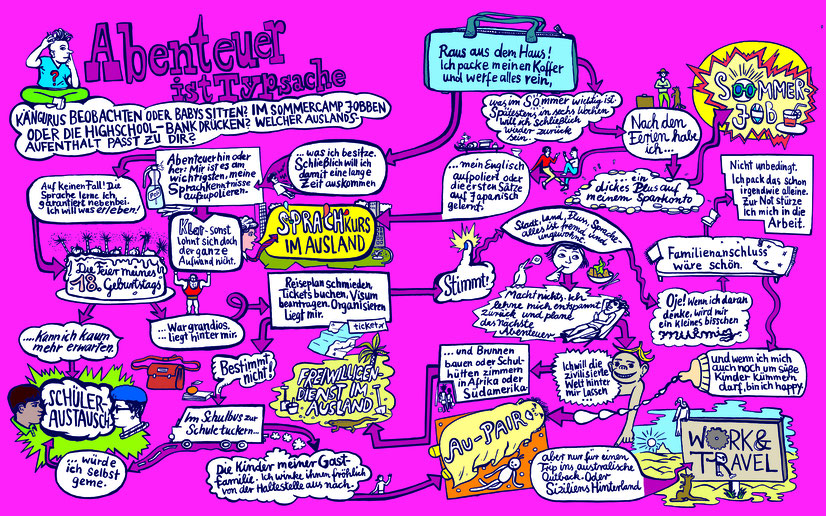 Abenteuer
ist Typsache
KÄNGURUS BEOBACHTEN ODER BABYSITTEN? IM SOMMERCAMP JOBBEN
ODER DIE HIGHSCHOOL-BANK DRÜCKEN? WELCHER AUSLANDS-
AUFENTHALT PASST ZU DIR?
Raus aus dem Haus!
Ich packe meinen Koffer
und werfe alles rein,
was im Sommer wichtig ist.
Spätestens in sechs Wochen
will ich schließlich
wieder zurück
sein.
Nach dem
Ferien habe
ich...
SOMMER-
JOB
... was ich besitze.
Schließlich will ich
damit eine lange
Zeit auskommen
Abenteuer hin oder
her: Mir ist es am
wichtigsten, meine
Sprachkenntnisse
aufzupolieren.
Auf keinen Fall! Die
Sprache lerne ich
garantiert nebenbei.
Ich will was erleben!
Klar - sonst
lohnt sich doch
der ganze
Aufwand nicht.
SPRACHKURS
IM AUSLAND
... mein Englisch
aufpoliert oder
die ersten Sätze
auf Japanisch
gelernt.
... ein
dickes Plus auf
meinem Sparkonto
Nicht unbedingt.
Ich pack das schon
irgendwie alleine.
Zur Not stürze
ich mich in die
Arbeit.
Die Feier meines
18. Geburtstags
... War grandios,
liegt hinter mir.
Reiseplan schmieden,
Tickets buchen, Visum
beantragen. Organisieren
liegt mir.
tickets
Stimmt!
Stadt, Land, Fluss, Sprache-
alles ist fremd und
ungewohnt.
Macht nichts. Ich
lehne mich entspannt
zurück und plane
das nächste
Abenteuer
Oje! Wenn ich daran
denke, wird mir
ein kleines bisschen
mulmig
Familienanschluss
wäre schön.
.... Kann ich kaum
mehr erwarten.
Bestimmt
nicht!
FREIWILLIGEN
DIENST IM
AUSLAND
... und Brunnen
bauen oder Schul-
hütten zimmern
in Afrika oder
Südamerika.
Ich will die
zivilisierte
Welt hinter
mir lassen
... und wenn ich mich
auch noch um süße
Kinder kümmern
darf, bin ich happy
SCHÜLER
AUSTAUSCH
Im Schulbus zur
Schule tuckern...
... würde
ich selbst
gerne.
Die Kinder meiner Gast-
familie. Ich winke ihnen fröhlich
von der Haltestelle aus nach.
AU-PAIR
aber nur für einen
Trip ins australische
Outback. Oder
Siziliens Hinterland
WORK &
TRAVEL